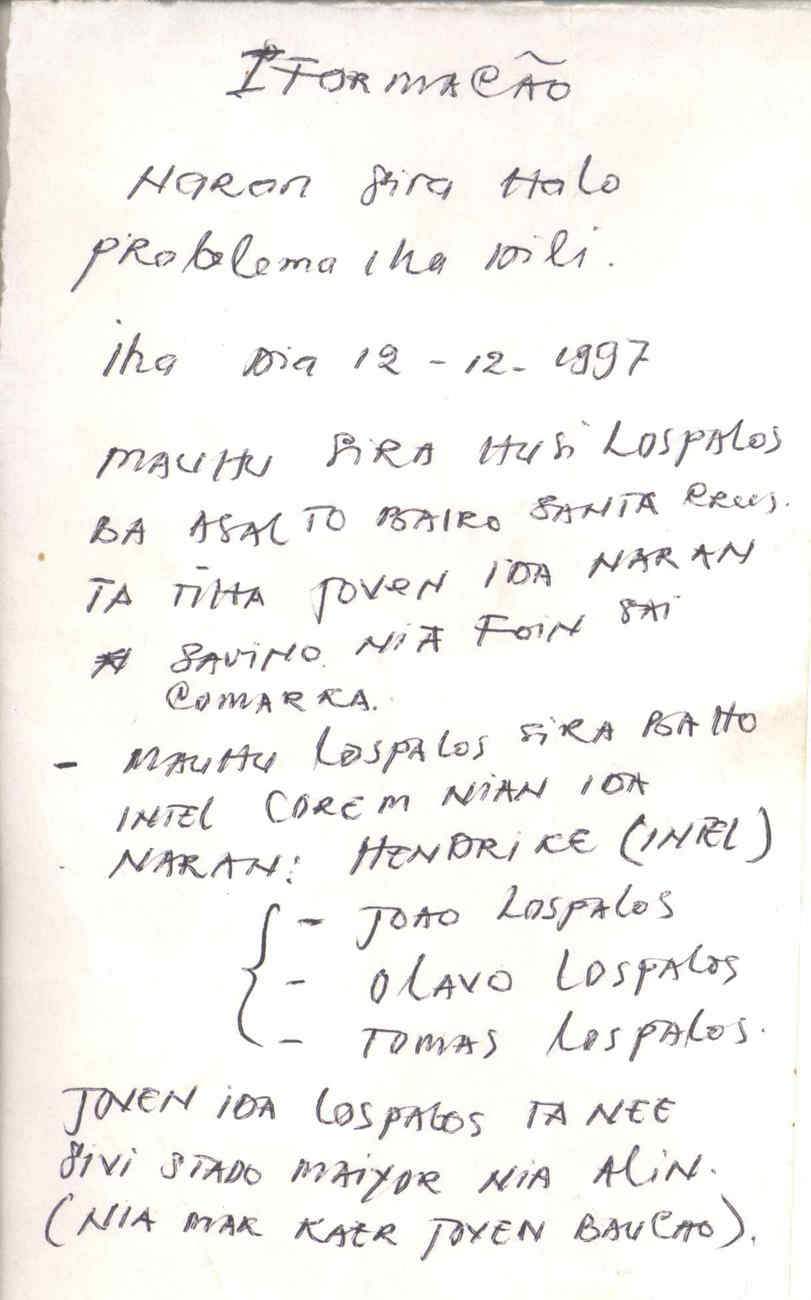 IFORMACÃO
NARAN SIRA HALO
PROBLEMA IHA DILI.
IHA DIA 12 - 12 - 1997
MAUHU SIRA HUSI LOSPALOS
BA ASALTO BAIRO SANTA CRUS.
TA TIHA JOVEN IDA NARAN
SAVINO NIA FOIN SAI
COMARKA.
- MAUHU LOSPALOS SIRA BAHO
INTEL COREM NIAN IDA
NARAN: HENDRIKE (INTEL)
- JOAO LOSPALOS
- OLAVO LOSPALOS
- TOMAS LOSPALOS.
JOVEN IDA LOSPALOS TA NEE
SIVI STADO MAIYOR NIA ALIN.
(NIA MAK KAER JOVEN BAUCAO).